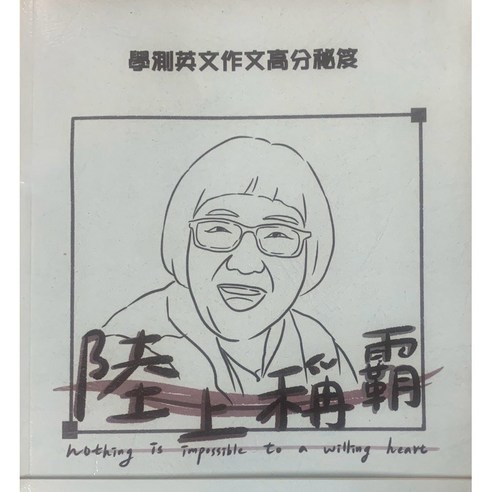 學測英文作文高分祕笈
陸上稱霸
Nothing is impossible to a willing heart